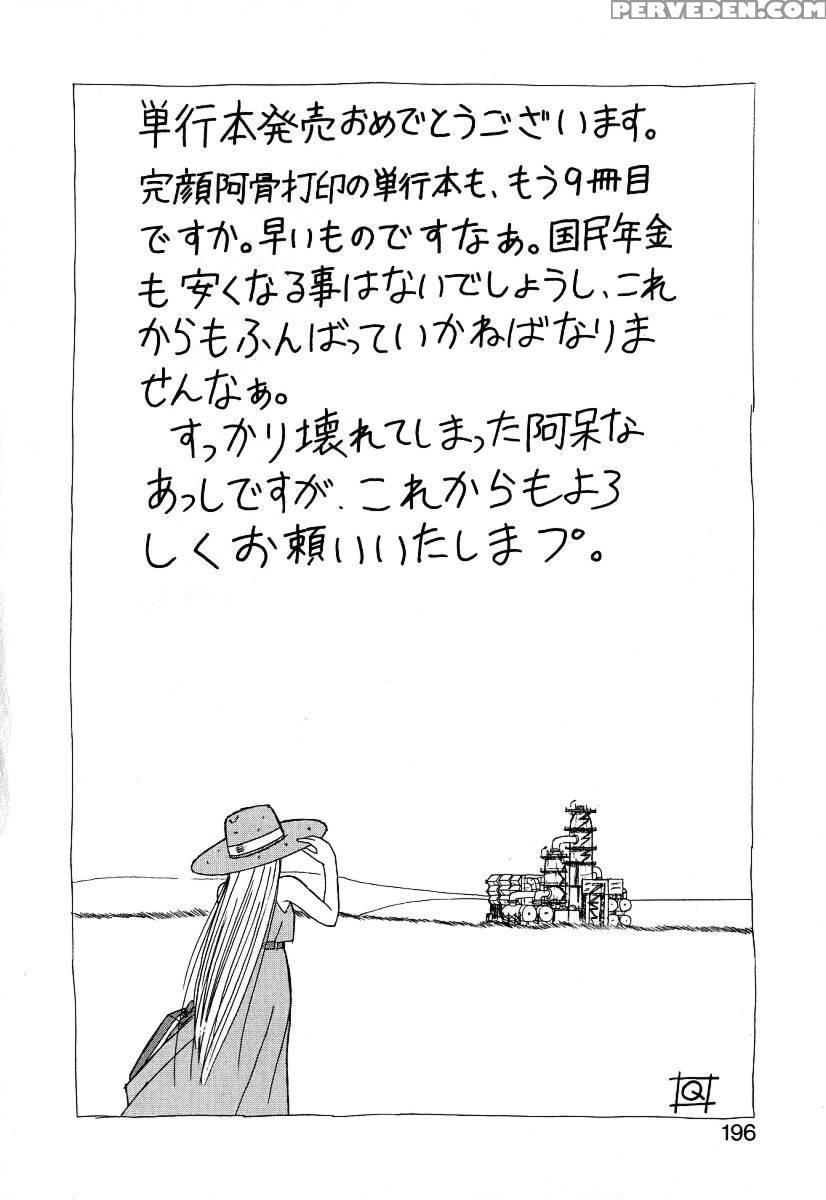 PERVEDEN.COM
単行本発売おめでとうございます。
完顔阿骨打印の単行本も、もう9冊目
ですか。早いものですなぁ。国民年金
も安くなる事はないでしょうし、これ
からもふんばっていかねばなりま
せんなぁ。
すっかり壊れてしまった阿呆な
あっしですが、これからもよろ
しくお頼いいたしまプ。
Q
196